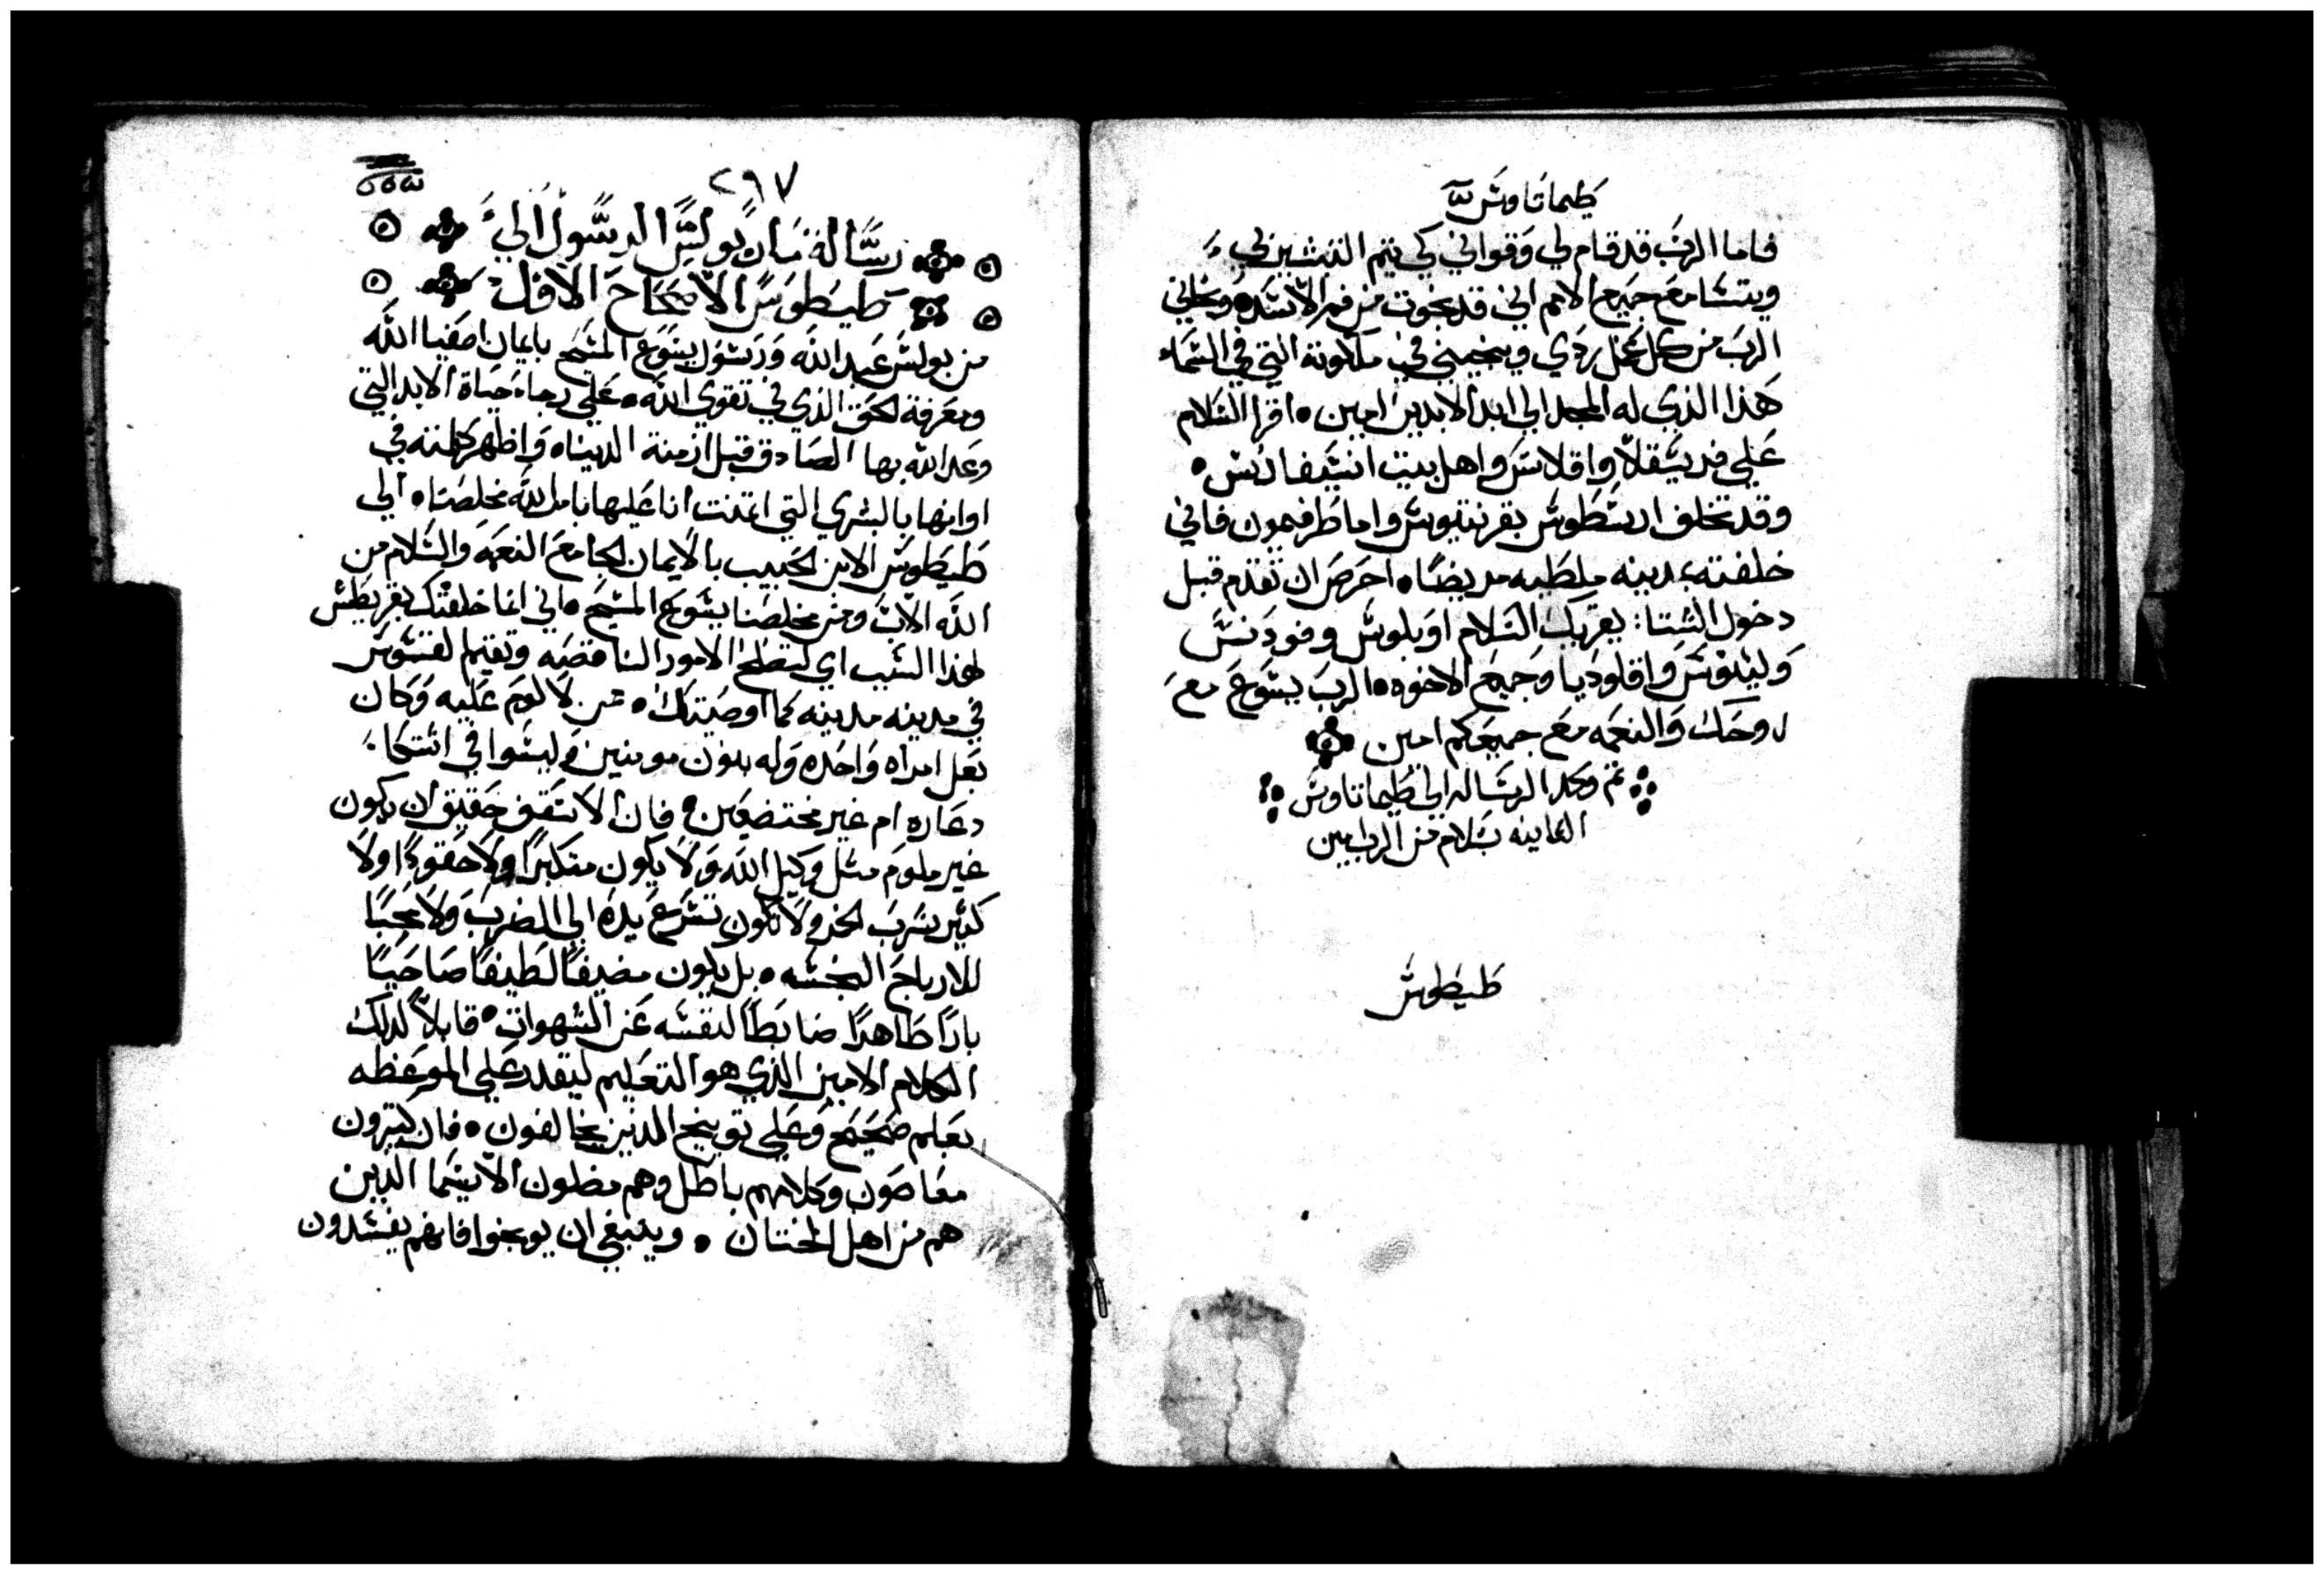 طيماتاوس
فاما الرب قد قام لي وقواني كي تتم التبشير لي
ويتسامع جميع الامم اني قد نجوت من فم الاسد ونجاني
الرب من كل عمل ردي وينجيني في ملكوته التي في السماء
هذا الذي له المجد الي ابد الابدين امين اقرا السلام
علي فريسقلا واقلاس واهل بيت انسيفارس
وقد تخلف ارسطوس بقرنتيوس واما طرفيمون فاني
خلفته بمدينه ملطيه مريضا احرص ان تقدم قبل
دخول الشتا يقريك السلام اوبلوس وفودنس
ولينوس واقلوديا وجميع الاخوه الرب يسوع مع
روحك والنعمه مع جميعكم امين
تم وكمل الرساله الي طيماتاوس
الثانيه بسلام من الرب امين
طيطوس
٢٩٧
رسالة مار بولس الرسول الي
طيطوس الاصحاح الاول
من بولس عبد الله ورسول يسوع المسيح بايمان اصفيا الله
ومعرفة الحق الذي في تقوي الله علي رجاء حياة الابد التي
وعد الله بها الصادق قبل ازمنة الدنيا واظهر كلمته في
اوانها بالبشري التي ايتمنت انا عليها بامر الله مخلصنا الي
طيطوس الابن الحبيب بالايمان الجامع النعمه والسلام من
الله الاب ومن مخلصنا يسوع المسيح اني انما خلفتك بقريطش
لهذا السبب اي لتصلح الامور الناقصه وتقيم لقسوس
في مدينه مدينه كما اوصيتك من لا لوم عليه وكان
بعل امراه واحده وله بنون مومنين وليسوا في اشتكاء
دعاره ام غير مختضعين فان الاسقف حقيق ان يكون
غير ملوم مثل وكيل الله ولا يكون متكبرا ولا حقودا ولا
كثير شرب الخمر ولا تكون تسرع يده الي الضرب ولا محبا
للارباح النجسه بل يكون مضيفا لطيفا صاحيا
بارا طاهرا ضابطا لنفسه عن الشهوات قابلا لذلك
الكلام الامين الذي هو التعليم ليقدر علي الموعظه
بعلم صحيح وعلي توبيخ الذين يخالفون فان كثيرون
معاصون وكلامهم باطل وهم مضلون الاسيما الذين
هم من اهل الختان وينبغي ان يوبخوا فانهم يفسدون